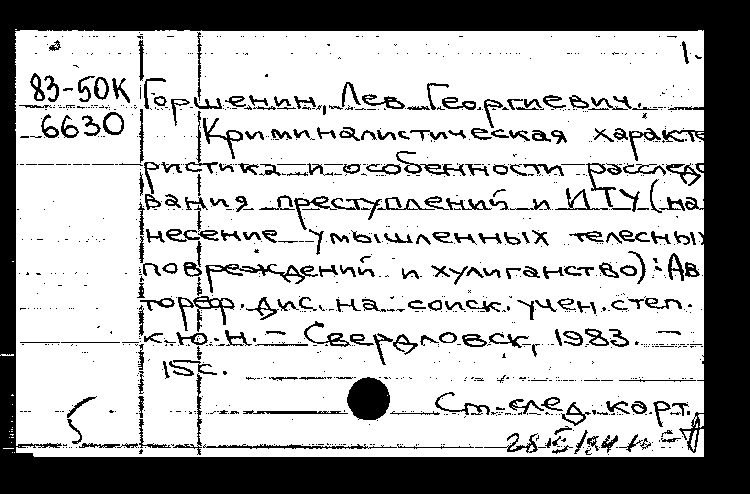 1.
83-50К Горшенин, Лев Георгиевич.
6630 Криминалистическая характе
ристика и особенности расследо
вания преступлений и ИТУ (на
несение умышленных телесных
повреждений и хулиганство): Ав
тореф. дис. на соиск. учен. степ.
к.ю.н. – Свердловск, 1983. –
15с.
См. след. карт.
5